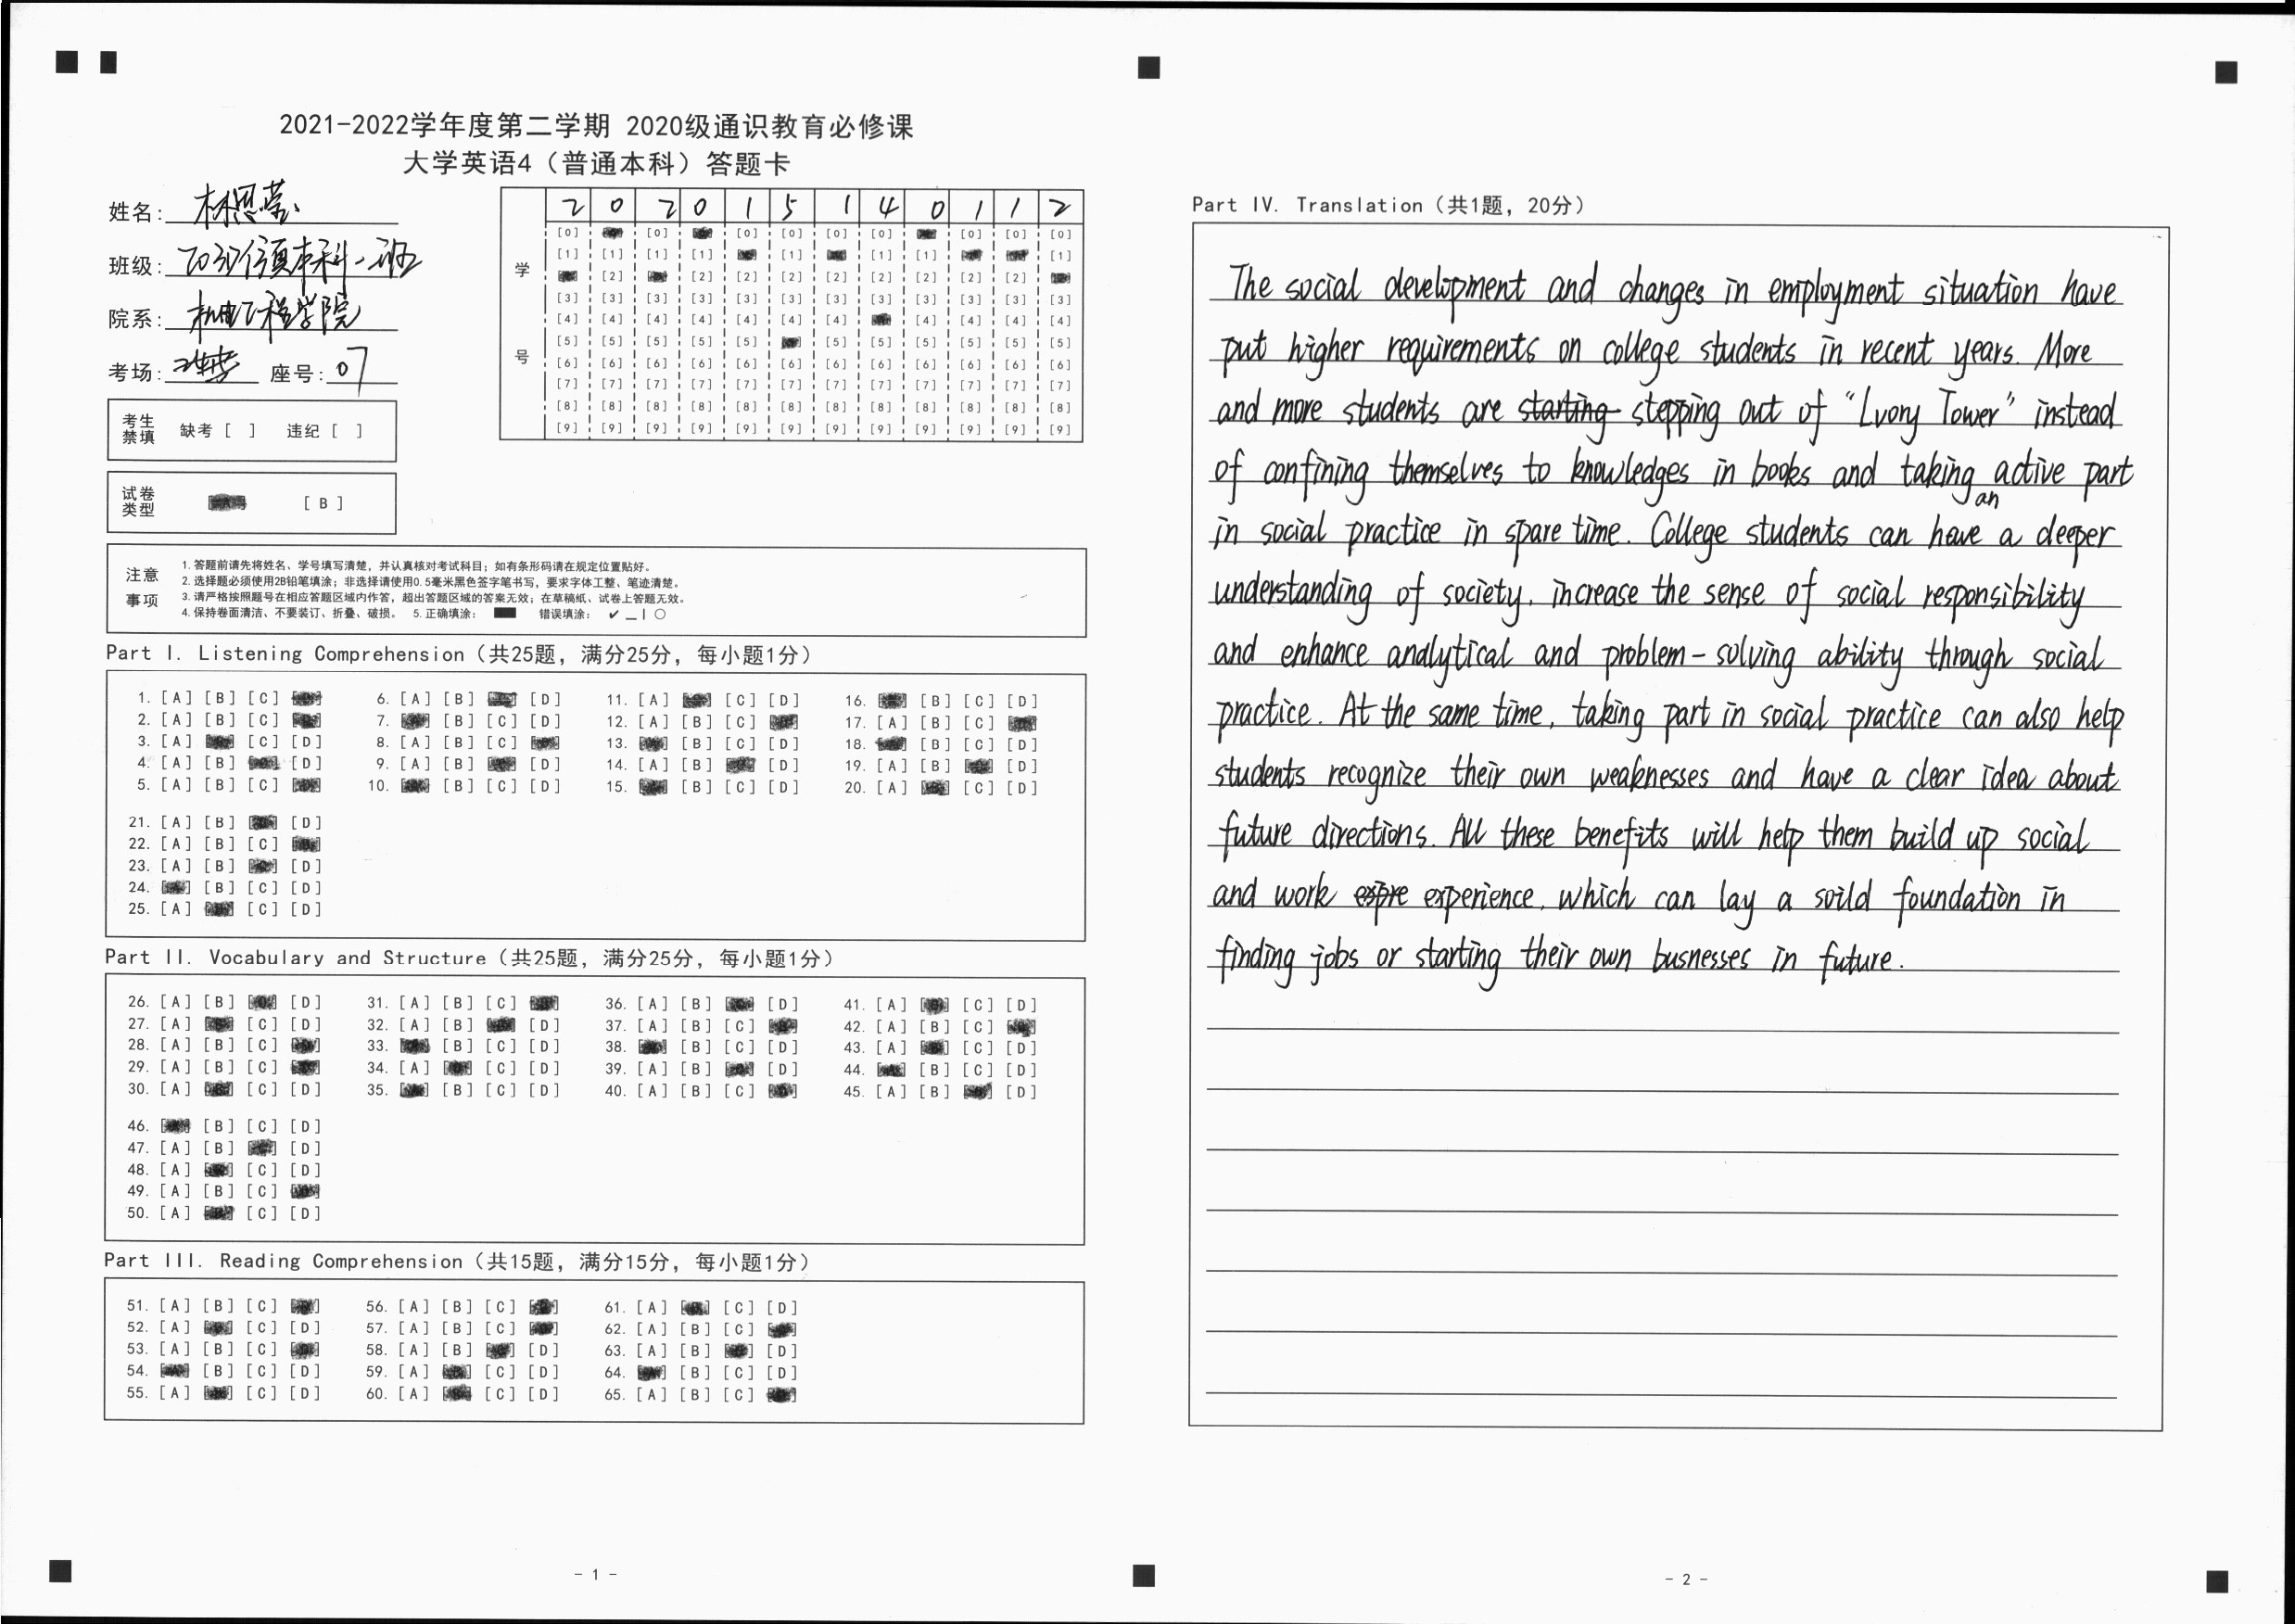 2021-2022学年度第二学期 2020级通识教育必修课
大学英语4（普通本科）答题卡
姓名:
班级:
院系: 机电工程学院
考场: 座号: 07
学号
2 0 2 0 1 5 1 4 0 1 1 2
[0] [0] [0] [0] [0] [0] [0] [0] [0]
[1] [1] [1] [1] [1] [1] [1] [1]
[2] [2] [2] [2] [2] [2] [2] [2] [2]
[3] [3] [3] [3] [3] [3] [3] [3] [3] [3] [3] [3]
[4] [4] [4] [4] [4] [4] [4] [4] [4] [4] [4]
[5] [5] [5] [5] [5] [5] [5] [5] [5] [5] [5]
[6] [6] [6] [6] [6] [6] [6] [6] [6] [6] [6] [6]
[7] [7] [7] [7] [7] [7] [7] [7] [7] [7] [7] [7]
[8] [8] [8] [8] [8] [8] [8] [8] [8] [8] [8] [8]
[9] [9] [9] [9] [9] [9] [9] [9] [9] [9] [9] [9]
考生禁填 缺考 [ ] 违纪 [ ]
试卷类型 [B]
注意事项
1.答题前请先将姓名、学号填写清楚，并认真核对考试科目；如有条形码请在规定位置贴好。
2.选择题必须使用2B铅笔填涂；非选择请使用0.5毫米黑色签字笔书写，要求字体工整、笔迹清楚。
3.请严格按照题号在相应答题区域内作答，超出答题区域的答案无效；在草稿纸、试卷上答题无效。
4.保持卷面清洁、不要装订、折叠、破损。 5.正确填涂： 错误填涂：
Part I. Listening Comprehension（共25题，满分25分，每小题1分）
1. [A] [B] [C] 6. [A] [B] [D] 11. [A] [C] [D] 16. [B] [C] [D]
2. [A] [B] [C] 7. [B] [C] [D] 12. [A] [B] [C] 17. [A] [B] [C]
3. [A] [C] [D] 8. [A] [B] [C] 13. [B] [C] [D] 18. [B] [C] [D]
4. [A] [B] [D] 9. [A] [B] [D] 14. [A] [B] [D] 19. [A] [B] [D]
5. [A] [B] [C] 10. [B] [C] [D] 15. [B] [C] [D] 20. [A] [C] [D]
21. [A] [B] [D]
22. [A] [B] [C]
23. [A] [B] [D]
24. [B] [C] [D]
25. [A] [C] [D]
Part II. Vocabulary and Structure（共25题，满分25分，每小题1分）
26. [A] [B] [D] 31. [A] [B] [C] 36. [A] [B] [D] 41. [A] [C] [D]
27. [A] [C] [D] 32. [A] [B] [D] 37. [A] [B] [C] 42. [A] [B] [C]
28. [A] [B] [C] 33. [B] [C] [D] 38. [B] [C] [D] 43. [A] [C] [D]
29. [A] [B] [C] 34. [A] [C] [D] 39. [A] [B] [D] 44. [B] [C] [D]
30. [A] [C] [D] 35. [B] [C] [D] 40. [A] [B] [C] 45. [A] [B] [D]
46. [B] [C] [D]
47. [A] [B] [D]
48. [A] [C] [D]
49. [A] [B] [C]
50. [A] [C] [D]
Part III. Reading Comprehension（共15题，满分15分，每小题1分）
51. [A] [B] [C] 56. [A] [B] [C] 61. [A] [C] [D]
52. [A] [C] [D] 57. [A] [B] [C] 62. [A] [B] [C]
53. [A] [B] [C] 58. [A] [B] [D] 63. [A] [B] [D]
54. [B] [C] [D] 59. [A] [C] [D] 64. [B] [C] [D]
55. [A] [C] [D] 60. [A] [C] [D] 65. [A] [B] [C]
- 1 -
Part IV. Translation（共1题，20分）
The social development and changes in employment situation have
put higher requirements on college students in recent years. More
and more students are starting stepping out of "Lvory Tower" instead
of confining themselves to knowledges in books and taking an active part
in social practice in spare time. College students can have a deeper
understanding of society, increase the sense of social responsibility
and enhance analytical and problem-solving ability through social
practice. At the same time, taking part in social practice can also help
students recognize their own weaknesses and have a clear idea about
future directions. All these benefits will help them build up social
and work expre experience, which can lay a soild foundation in
finding jobs or starting their own busnesses in future.
- 2 -